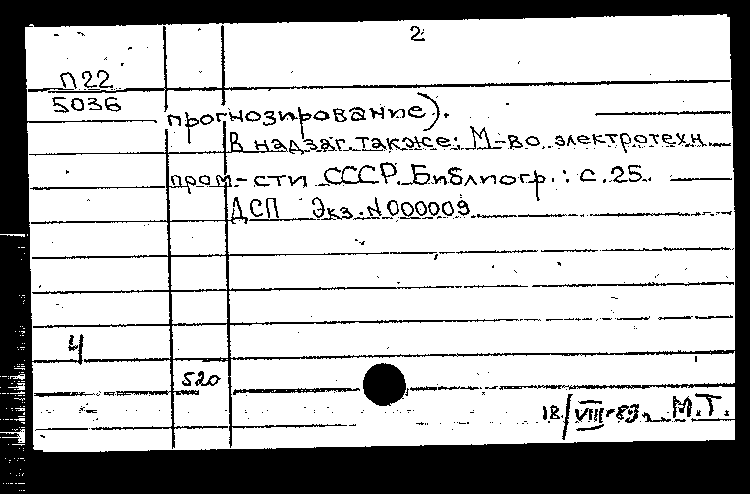 2
П 22
5036
прогнозирование).
В надзаг. также: М-во электротехн.
пром-сти СССР. Библиогр.: с. 25.
ДСП Экз. N 000009
4
520
18/VIII-89, М.Т.